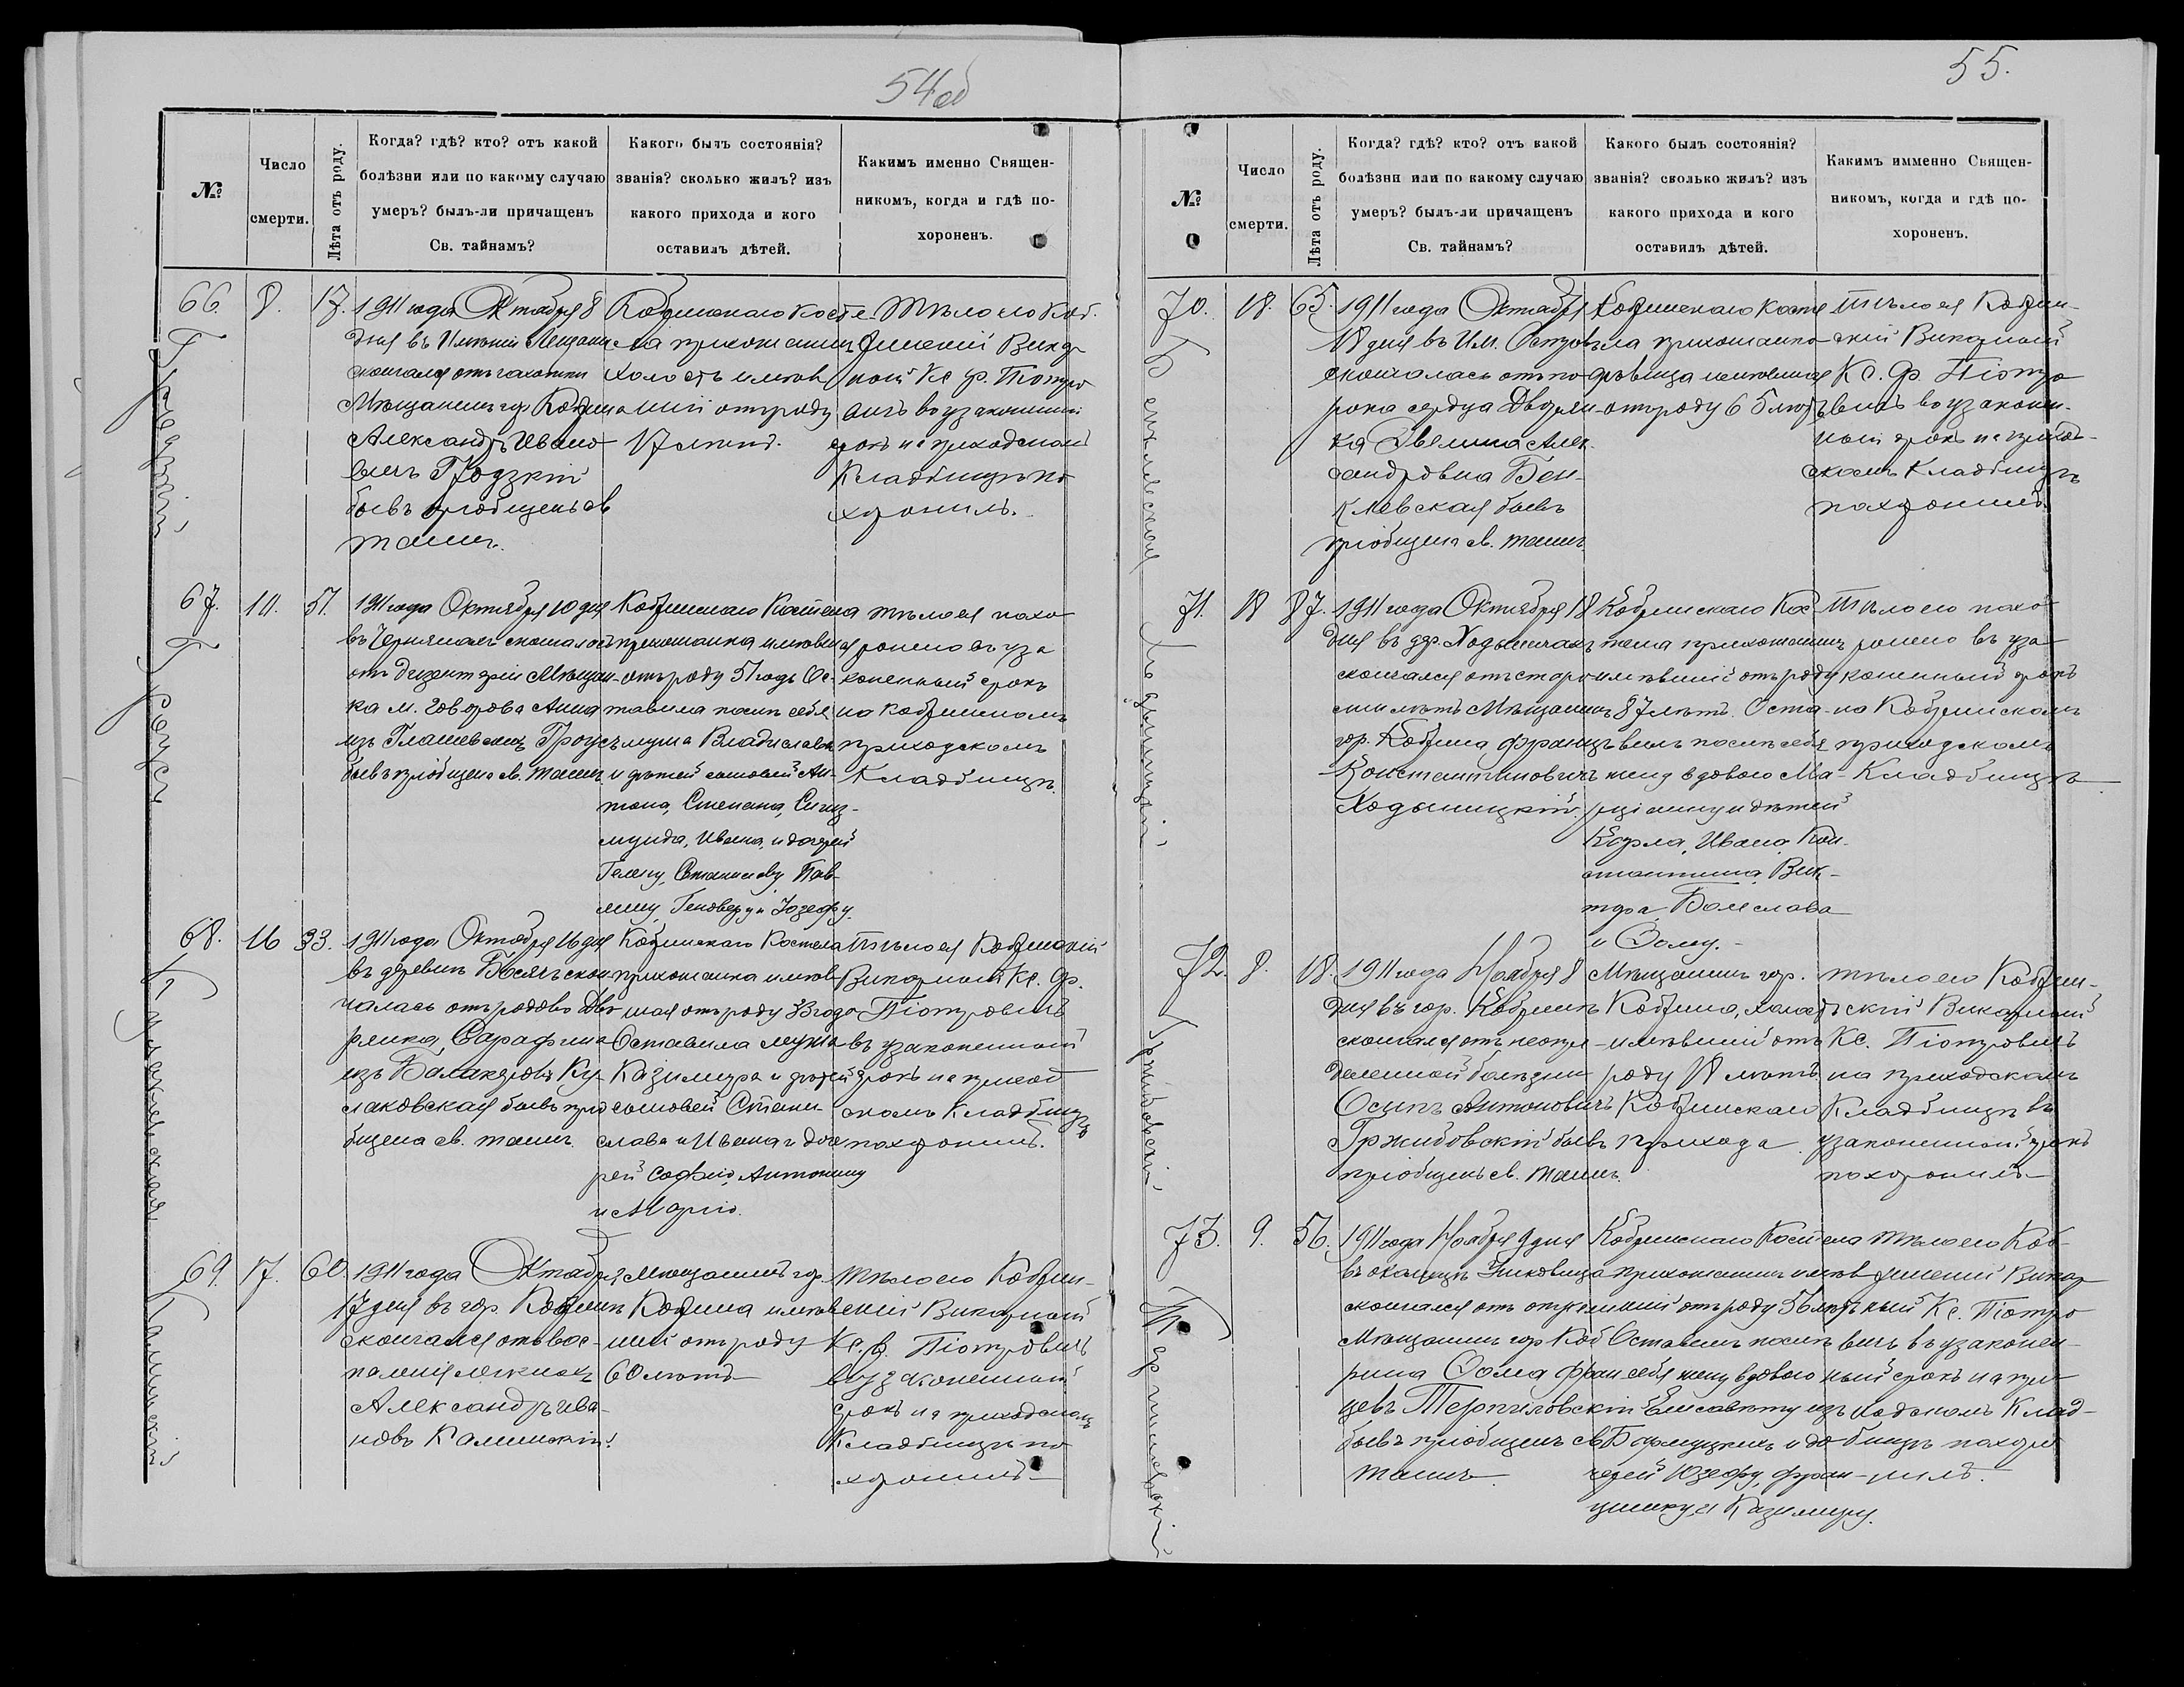 54об
№
Число
смерти.
Лѣта отъ роду.
Когда? гдѣ? кто? отъ какой
болѣзни или по какому случаю
умеръ? былъ-ли причащенъ
Св. тайнамъ?
Какого былъ состоянія?
званія? сколько жилъ? изъ
какого прихода и кого
оставилъ дѣтей.
Какимъ именно Священ-
никомъ, когда и гдѣ по-
хороненъ.
66. 8. 17.
Гродзкій
1911 года Октября 8
дня въ Имѣніи
скончался отъ чахотки
Мѣщанинъ гор. Кобрина
Александръ Ивано-
вичъ Гродзкій
бывъ пріобщенъ св
таинъ.
Кобринскаго косте-
ла прихожанинъ
холостъ имѣв
шій отъ роду
17 лѣтъ.
Тѣло его Коб.
ринскій Викар
ный Кс. Ф. Піотро
вичъ въ узаконенный
срокъ на приходскомъ
Кладбищѣ по
хоронилъ.
67. 10. 51.
Гроусъ
1911 года Октября 10 дня
въ Чернянахъ скончалась
отъ дизентеріи Мѣщан-
ка м. Говорова Анна
изъ Глашевскихъ Гроусъ
бывъ пріобщена св. таинъ
Кобринскаго Костела
прихожанка имѣвшая
отъ роду 51 годъ Ос-
тавила послѣ себя
мужа Владислава
и дѣтей сыновей Ан-
тона, Степана, Сигиз-
мунда, Ивана, и дочерей
Гелену, Станиславу, Пав-
лину, Геновефу и Юзефу.
тѣло ея похо
ронено въ уза
коненный срокъ
на Кобринскомъ
приходскомъ
Кладбищѣ.
68. 16 33.
Кулаковская
1911 года Октября 16 дня
въ деревнѣ скон
чалась отъ родовъ Дво
рянка, Сарафина
изъ Ку-
лаковская бывъ пріо
бщена св. таинъ
Кобринскаго Костела
прихожанка имѣв
шая отъ роду 33 года
Оставила мужа
Казимира и дѣтей
сыновей Стани-
слава и Ивана и доче
рей Софію, Антонину
и Марію.
Тѣло ея Кобринскій
Викарный Кс. Ф.
Піотровичъ
въ узаконенный
срокъ на приход
скомъ Кладбищѣ
похоронилъ.
69. 17. 60.
Калинскій
1911 года Октября
17 дня въ гор. Кобринѣ
скончался отъ вос-
паленія легкихъ
Александръ Ива-
новъ Калинскій.
Мѣщанинъ гор.
Кобрина имѣв
шій отъ роду
60 лѣтъ
тѣло его Кобрин-
скій Викарный
Кс. Ф. Піотровичъ
въ узаконенный
срокъ на приходскомъ
Кладбищѣ по
хоронилъ
55.
№
Число
смерти.
Лѣта отъ роду.
Когда? гдѣ? кто? отъ какой
болѣзни или по какому случаю
умеръ? былъ-ли причащенъ
Св. тайнамъ?
Какого былъ состоянія?
званія? сколько жилъ? изъ
какого прихода и кого
оставилъ дѣтей.
Какимъ имменно Священ-
никомъ, когда и гдѣ по-
хороненъ.
70. 18. 65.
Бенклевская
1911 года Октября
18 дня въ Им. Островѣ
скончалась отъ по-
рока сердца Дворян-
ка Эвелина Алек-
сандровна Бен-
клевская бывъ
пріобщена св. таинъ
Кобринскаго Косте
ла прихожанка
дѣвица имѣвшая
отъ роду 65 лѣтъ
тѣло ея Кобрин-
скій Викарный
Кс. Ф. Піотро
вичъ въ узаконен-
ный срокъ на приход-
скомъ Кладбищѣ
похоронилъ.
71. 18 87.
Ходыницкій
1911 года Октября 18
дня въ дер. Ходыничахъ
скончался отъ старо
сти лѣтъ Мѣщанинъ
гор. Кобрина Францъ
Константиновичъ
Ходыницкій.
Кобринскаго Кос-
тела прихожанинъ
имѣвшій отъ роду
87 лѣтъ. Оста-
вилъ послѣ себя
жену вдовою Ма-
рціанну и дѣтей
Карла, Ивана, Кон-
стантина, Вик-
тора, Болеслава
и Ѳому.
Тѣло его похо
ронено въ уза
коненный срокъ
на Кобринскомъ
приходскомъ
Кладбищѣ
72. 8. 18.
Гржибовскій
1911 года Ноября 8
дня въ гор. Кобринѣ
скончался отъ неопре-
деленной болѣзни
Осипъ Антоновичъ
Гржибовскій бывъ
пріобщенъ св. таинъ.
Мѣщанинъ гор.
Кобрина, холостъ
имѣвшій отъ
роду 18 лѣтъ.
Кобринскаго
прихода.
тѣло его Кобрин-
скій Викарный
Кс. Піотровичъ
на приходскомъ
Кладбищѣ въ
узаконенный срокъ
похоронилъ
73. 9. 56.
Терпиловскій
1911 года Ноября 9 дня
въ околицѣ
скончался отъ
Мѣщанинъ гор Коб
рина Ѳома Фран
цевъ Терпиловскій
бывъ пріобщенъ св
таинъ.
Кобринскаго Костела
прихожанинъ имѣв
шій отъ роду 56 лѣтъ
Оставилъ послѣ
себя жену вдовою
Елисавету изъ
и до
черей Юзефу, Фран-
цишку и Казимиру.
тѣло его Коб
ринскій Викар
ный Кс. Піотро
вичъ въ узаконен-
ный срокъ на при
ходскомъ Клад-
бищѣ похоро
нилъ.